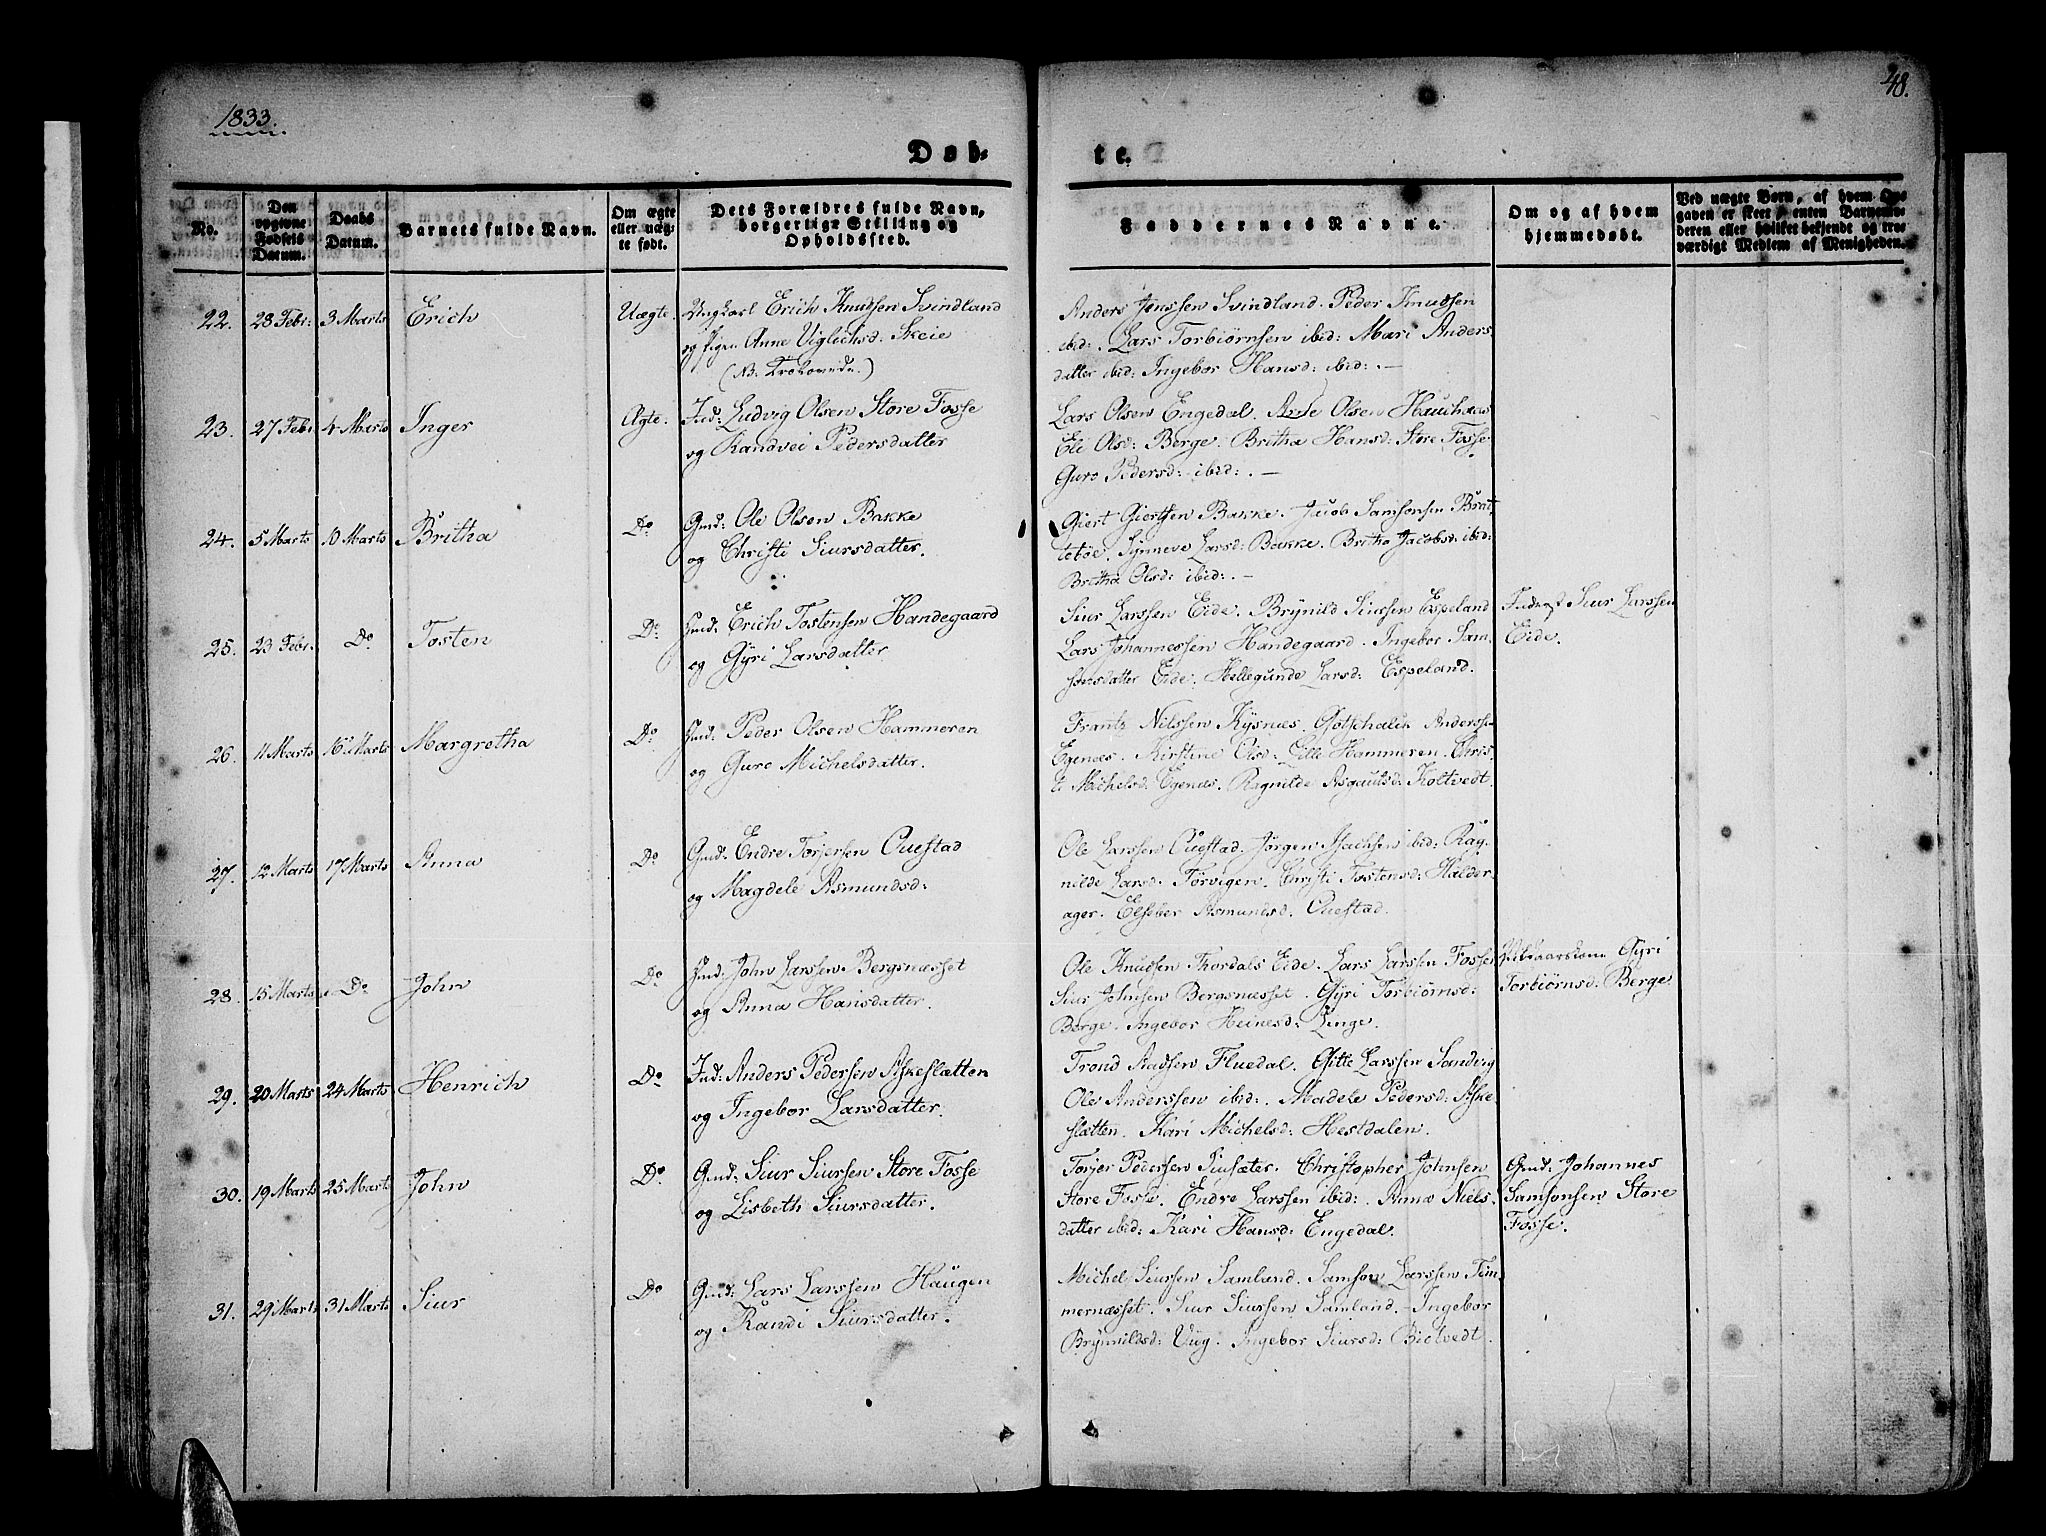 1833.
48.
Døb-
te.
No.
Den opgivne Fødsels Datum.
Daabs Datum.
Barnets fulde Navn.
Om ægte eller uægte født.
Dets Forældres fulde Navn, borgerlige Stilling og Opholdssted.
Faddernes Navne.
Om og af hvem hjemmedøbt.
Ved uægte Børn, af hvem Opgaven er skeet, enten Barnemoderen eller hvilket bekjendt og troværdigt Medlem af Menigheden.
22. 28 Febr: 3 Marts Erich Uægte. Ungkarl Erich Knudsen Svindland
og Pigen Anne Viglichsd: Skeie
Anders Jenssen Svindland. Peder Knudsen
ibid: Lars Torbiørnsen ibid: Mari Anders
datter ibid: Ingebor Hansd: ibid: . —
23. 27 Febr. 4 Marts Inger Ægte. Ind: Ludvig Olsen Store Fosse
og Randvei Pedersdatter
Lars Olsen Engedal. Arne Olsen Hauchaas
Eli Olsd: Berge. Britha Hansd: Store Fosse
Guro Pedersd: ibid: . —
24. 5 Marts 10 Marts Britha Do Gmd: Ole Olsen Bakke
og Christi Siursdatter.
Giert Giertsen Bakke. Jacob Samsonsen Brat
tetøe. Synneve Larsd: Bakke. Britha Jacobsd: ibid:
Britha Olsd: ibid: . —
25. 23 Febr. Do Tosten Do Hmd: Erich Tostensen Handegaard
og Gÿri Larsdatter
Siur Larssen Eide. Brÿnild Siursen Espeland
Lars Johannessen Handegaard. Ingebor Sam-
sonsdatter Eide. Hellegunde Larsd: Espeland.
Siur Larssen
Eide.
26. 11 Marts 16 Marts Margretha Do Hmd: Peder Olsen Hammeren
og Guro Michelsdatter.
Frantz Nilssen Kÿsnæs. Gotschalck Anderssen
Egenæs. Kirstine Olsd: Lille Hammeren. Chris
ti Michelsd: Egenæs. Ragnilde Asgautsd: Koltvedt.
27. 12 Marts 17 Marts Anna Do Gmd: Endre Torjersen Ouestad
og Magdele Asmundsd:
Ole Larssen Ouestad. Jørgen Isachsen ibid: Rag-
nilde Larsd: Tørvigen. Christi Tostensd: Halder-
ager. Elsebor Asmundsd. Ouestad.
28. 15 Marts. Do John Do Hmd: John Larssen Bergsnæsset
og Anna Hansdatter.
Ole Knudsen Thordals Eide. Lars Larssen Fosse
Siur Johnsen Bergsnæsset. Gÿri Torbiørnsd:
Berge. Ingebor Heinesd: Linge.
Gÿri
Torbiørnsd: Berge.
29. 20 Marts 24 Marts Henrich Do Ind: Anders Pedersen Askeslætten
og Ingebor Larsdatter.
Trond Aadsen Fluedal. Gitle Larssen Sandvig
Ole Anderssen ibid: . Madele Pedersd: Aske
slætten. Kari Michelsd: Hestdalen.
30. 19 Marts 25 Marts John Do Gmd: Siur Siursen Store Fosse
og Lisbeth Siursdatter.
Torjer Pedersen Siusæter. Christopher Johnsen
Store Fosse. Endre Larssen ibid: . Anna Niels-
datter ibid: Kari Hansd: Engedal.
Gmd: Johannes
Samsonsen Store
Fosse.
31. 29 Marts 31 Marts Siur Do Gmd: Lars Larssen Haugen
og Randi Siursdatter.
Michel Siursen Samland. Samson Larssen Tim-
mernæsset. Siur Siursen Samland. Ingebor
Brÿnnildsd: Viig. Ingebor Siursd: Biotvedt.